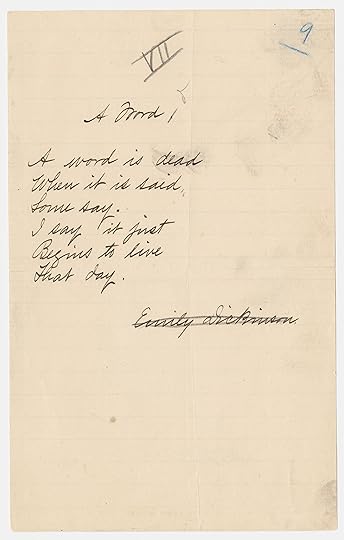 VII
9
A Word
A word is dead
When it is said,
Some say.
I say it just
Begins to live
That day.
Emily Dickinson.